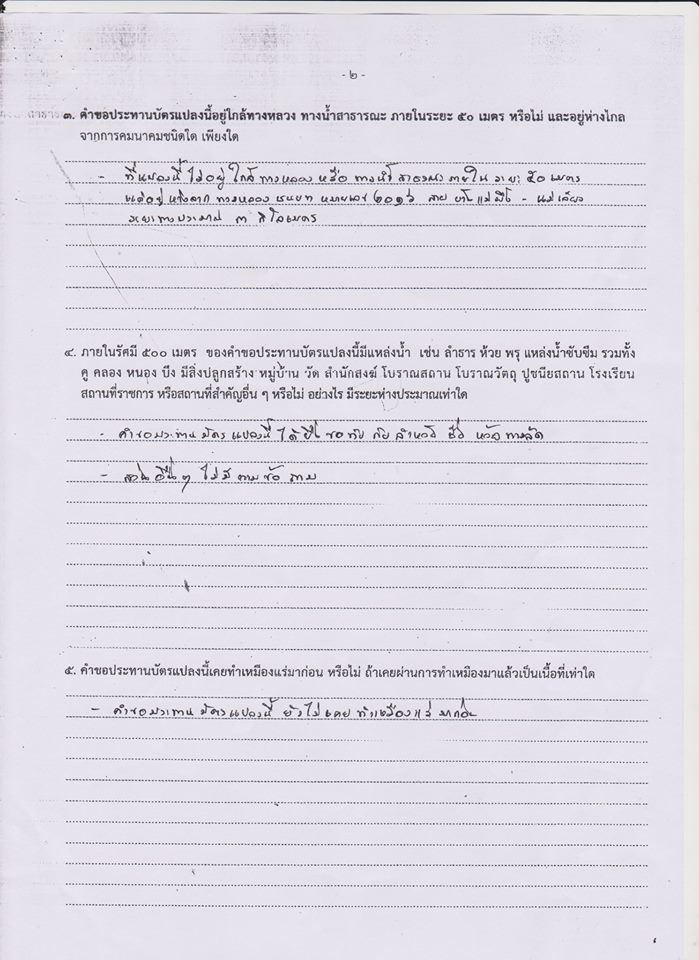 - ๒ -
๓. คำขอประทานบัตรแปลงนี้อยู่ใกล้ทางหลวง ทางน้ำสาธารณะ ภายในระยะ ๕๐ เมตร หรือไม่ และอยู่ห่างไกล
จากการคมนาคมชนิดใด เพียงใด
- ที่แปลงนี้ ไม่อยู่ ใกล้ ทางหลวง หรือ ทางน้ำ สาธารณะ ภายใน ระยะ ๕๐ เมตร
แต่อยู่ ห่างจาก ทางหลวง ชนบท หมายเลข ๒๐๑๖ สาย
ระยะทางประมาณ ๓ กิโลเมตร
๔. ภายในรัศมี ๕๐๐ เมตร ของคำขอประทานบัตรแปลงนี้มีแหล่งน้ำ เช่น ลำธาร ห้วย พรุ แหล่งน้ำซับซึม รวมทั้ง
คู คลอง หนอง บึง มีสิ่งปลูกสร้าง หมู่บ้าน วัด สำนักสงฆ์ โบราณสถาน โบราณวัตถุ ปูชนียสถาน โรงเรียน
สถานที่ราชการ หรือสถานที่สำคัญอื่น ๆ หรือไม่ อย่างไร มีระยะห่างประมาณเท่าใด
- คำขอประทานบัตรแปลงนี้ ได้ยื่นขอทับ กับ ลำห้วย ชื่อ ห้วยทางลัด
- ส่วนอื่นๆ ไม่มี ตามข้อถาม
๕. คำขอประทานบัตรแปลงนี้เคยทำเหมืองแร่มาก่อน หรือไม่ ถ้าเคยผ่านการทำเหมืองมาแล้วเป็นเนื้อที่เท่าใด
- คำขอประทานบัตรแปลงนี้ ยังไม่เคย ทำเหมืองแร่ มาก่อน